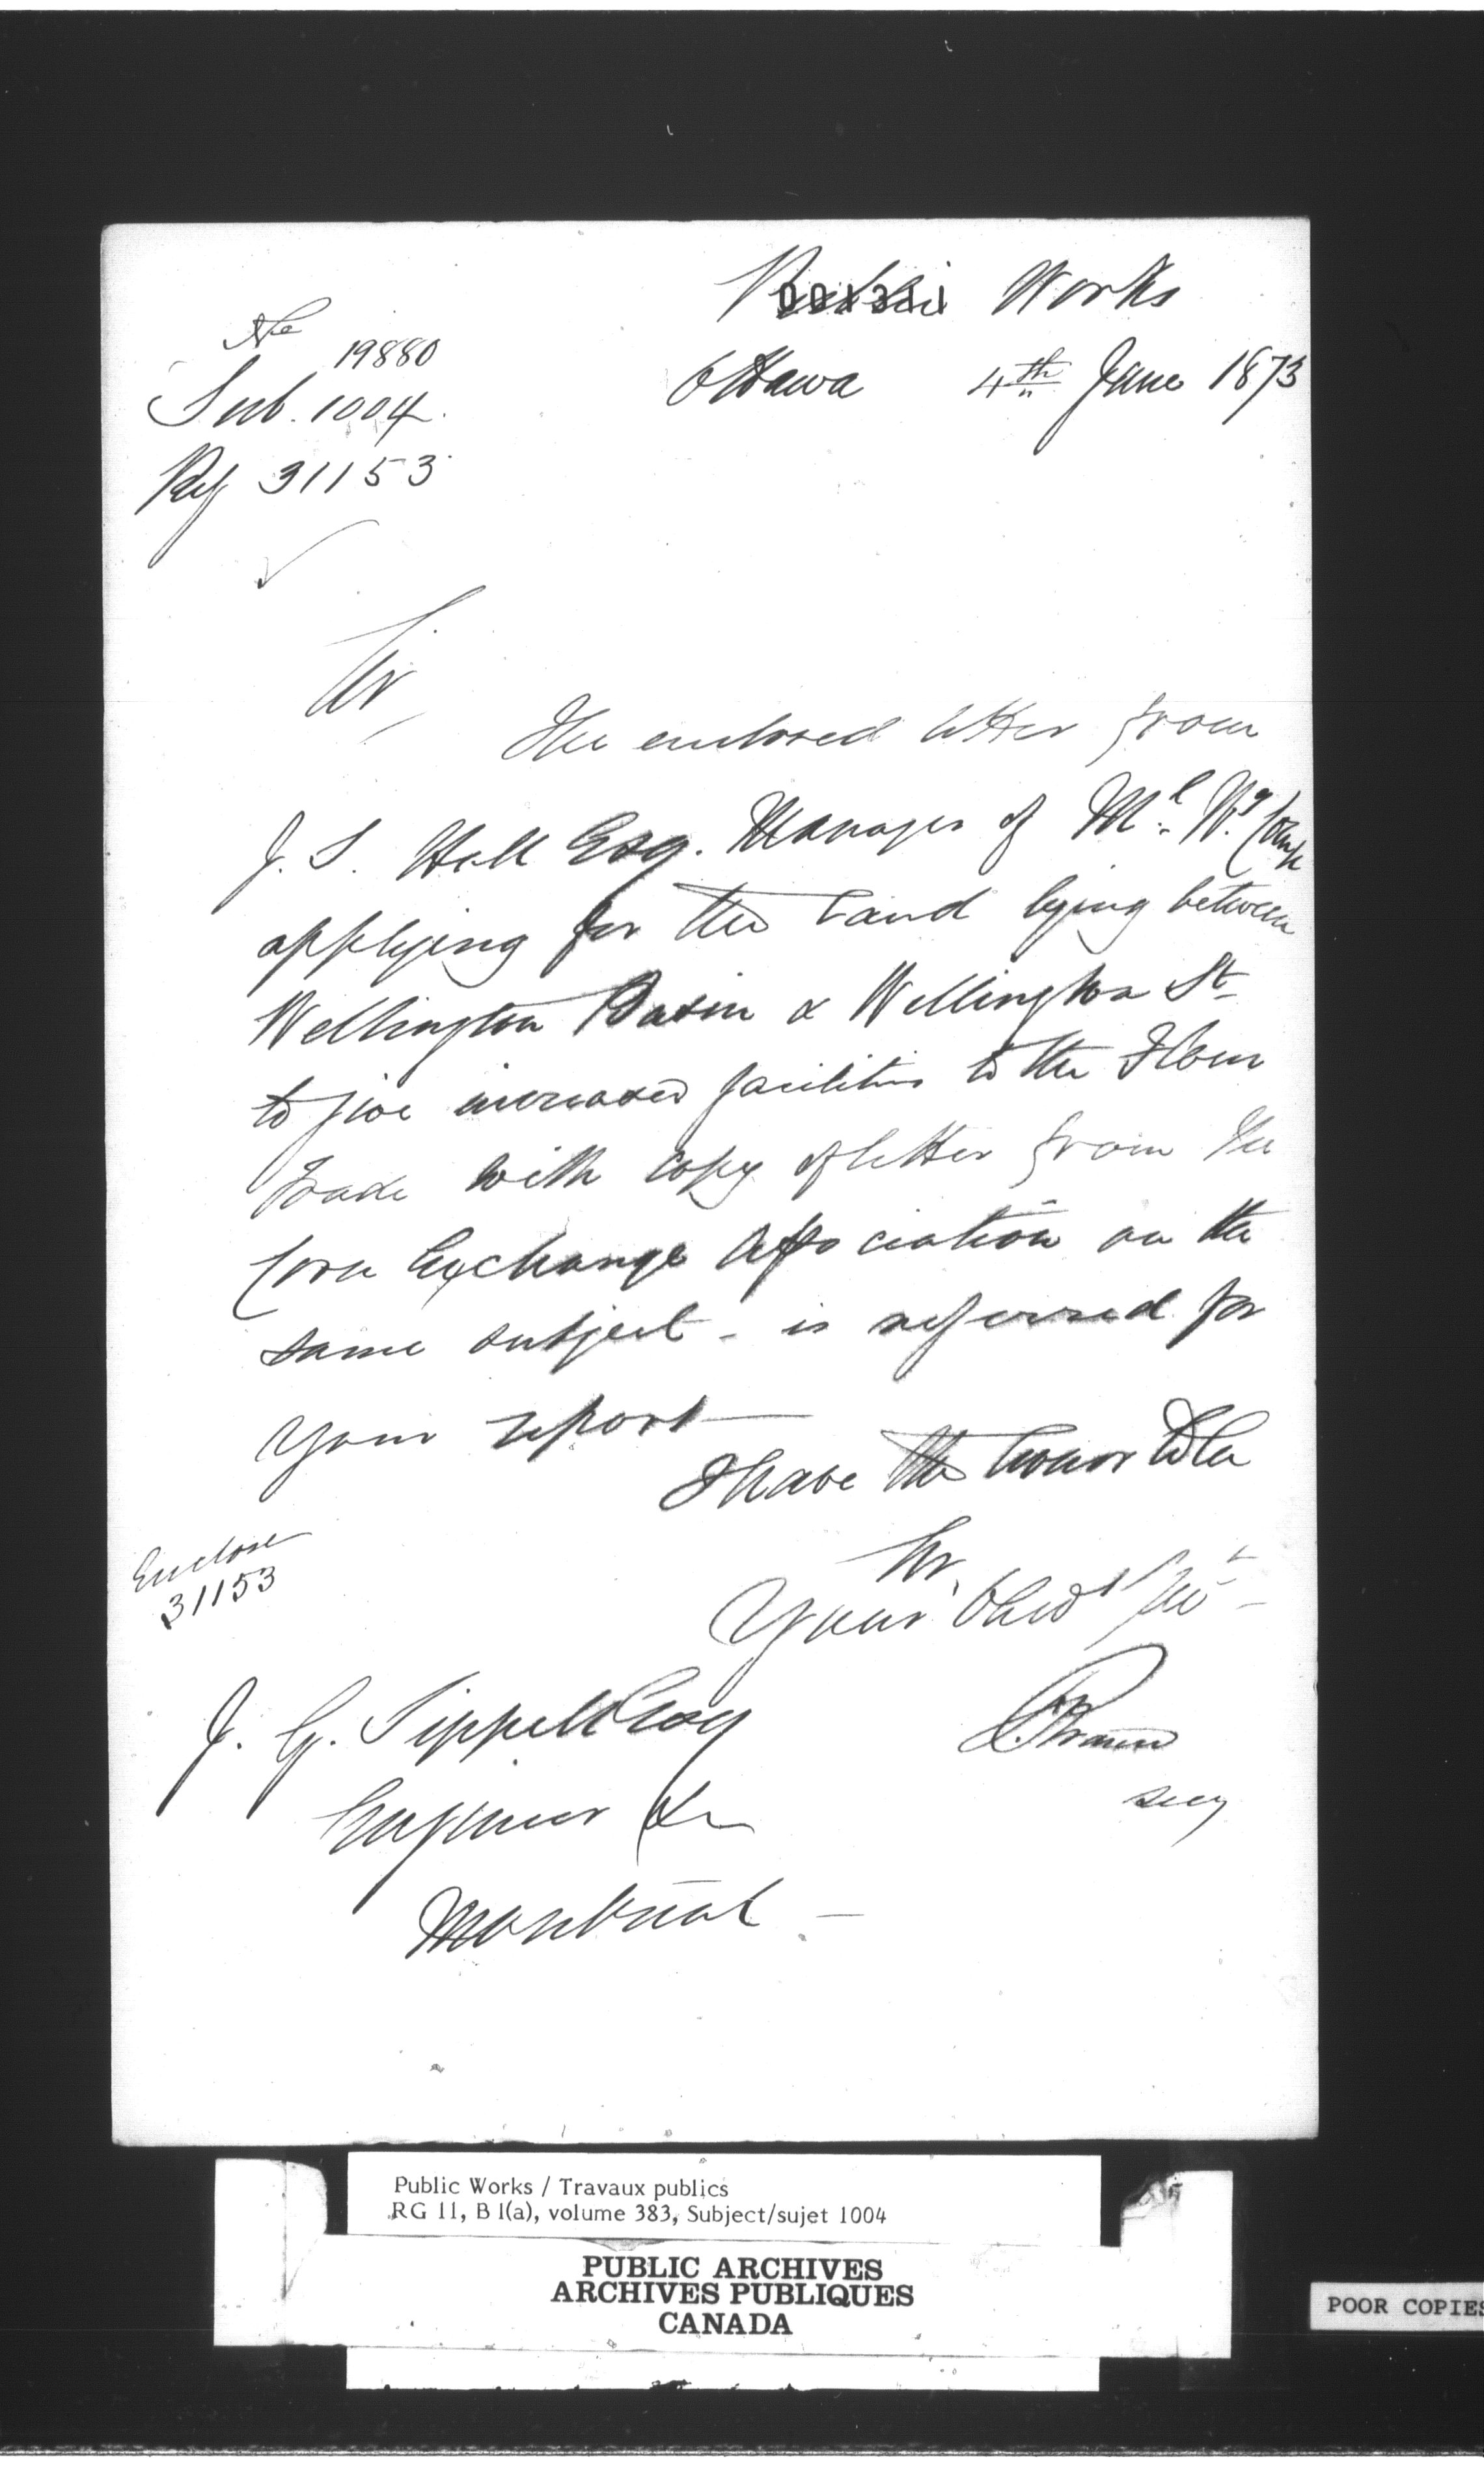 Public Works
001311
No 19880
Ottawa 4th June 1873
Sub. 1004.
Ref 31153
Sir,
The enclosed letter from
J. S. Hall Esq. Manager of Ml. Wg Comp
applying for the land lying between
Wellington Basin & Wellington St
to give increased facilities to the Flour
Trade with copy of letter from the
Corn Exchange Association on the
same subject - is referred for
your report
I have the honor to be
Sir,
Your Obedt Sert
Enclose
31153
J. G. Sippell Esq
F. Braun
Secy
Engineer &c
Montreal -
Public Works / Travaux publics
RG 11, B 1(a), volume 383, Subject/sujet 1004
PUBLIC ARCHIVES
ARCHIVES PUBLIQUES
CANADA
POOR COPIES